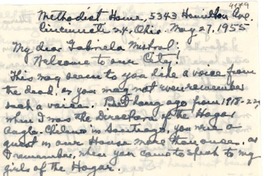 Methodist Home, 5343 Hamilton Ave.
Cincinnati 24, Ohio. May 27, 1955
My dear Gabriela Mistral:
Welcome to our City!
This may seem to you like a voice from
the dead, or you may not even remember
such a voice. But long ago from 1918-22,
when I was the Directora of the Hogar
Anglo-Chileno in Santiago, you were a
guest in our House more than once, as
I remember, when you came to speak to my
girls of the Hogar.